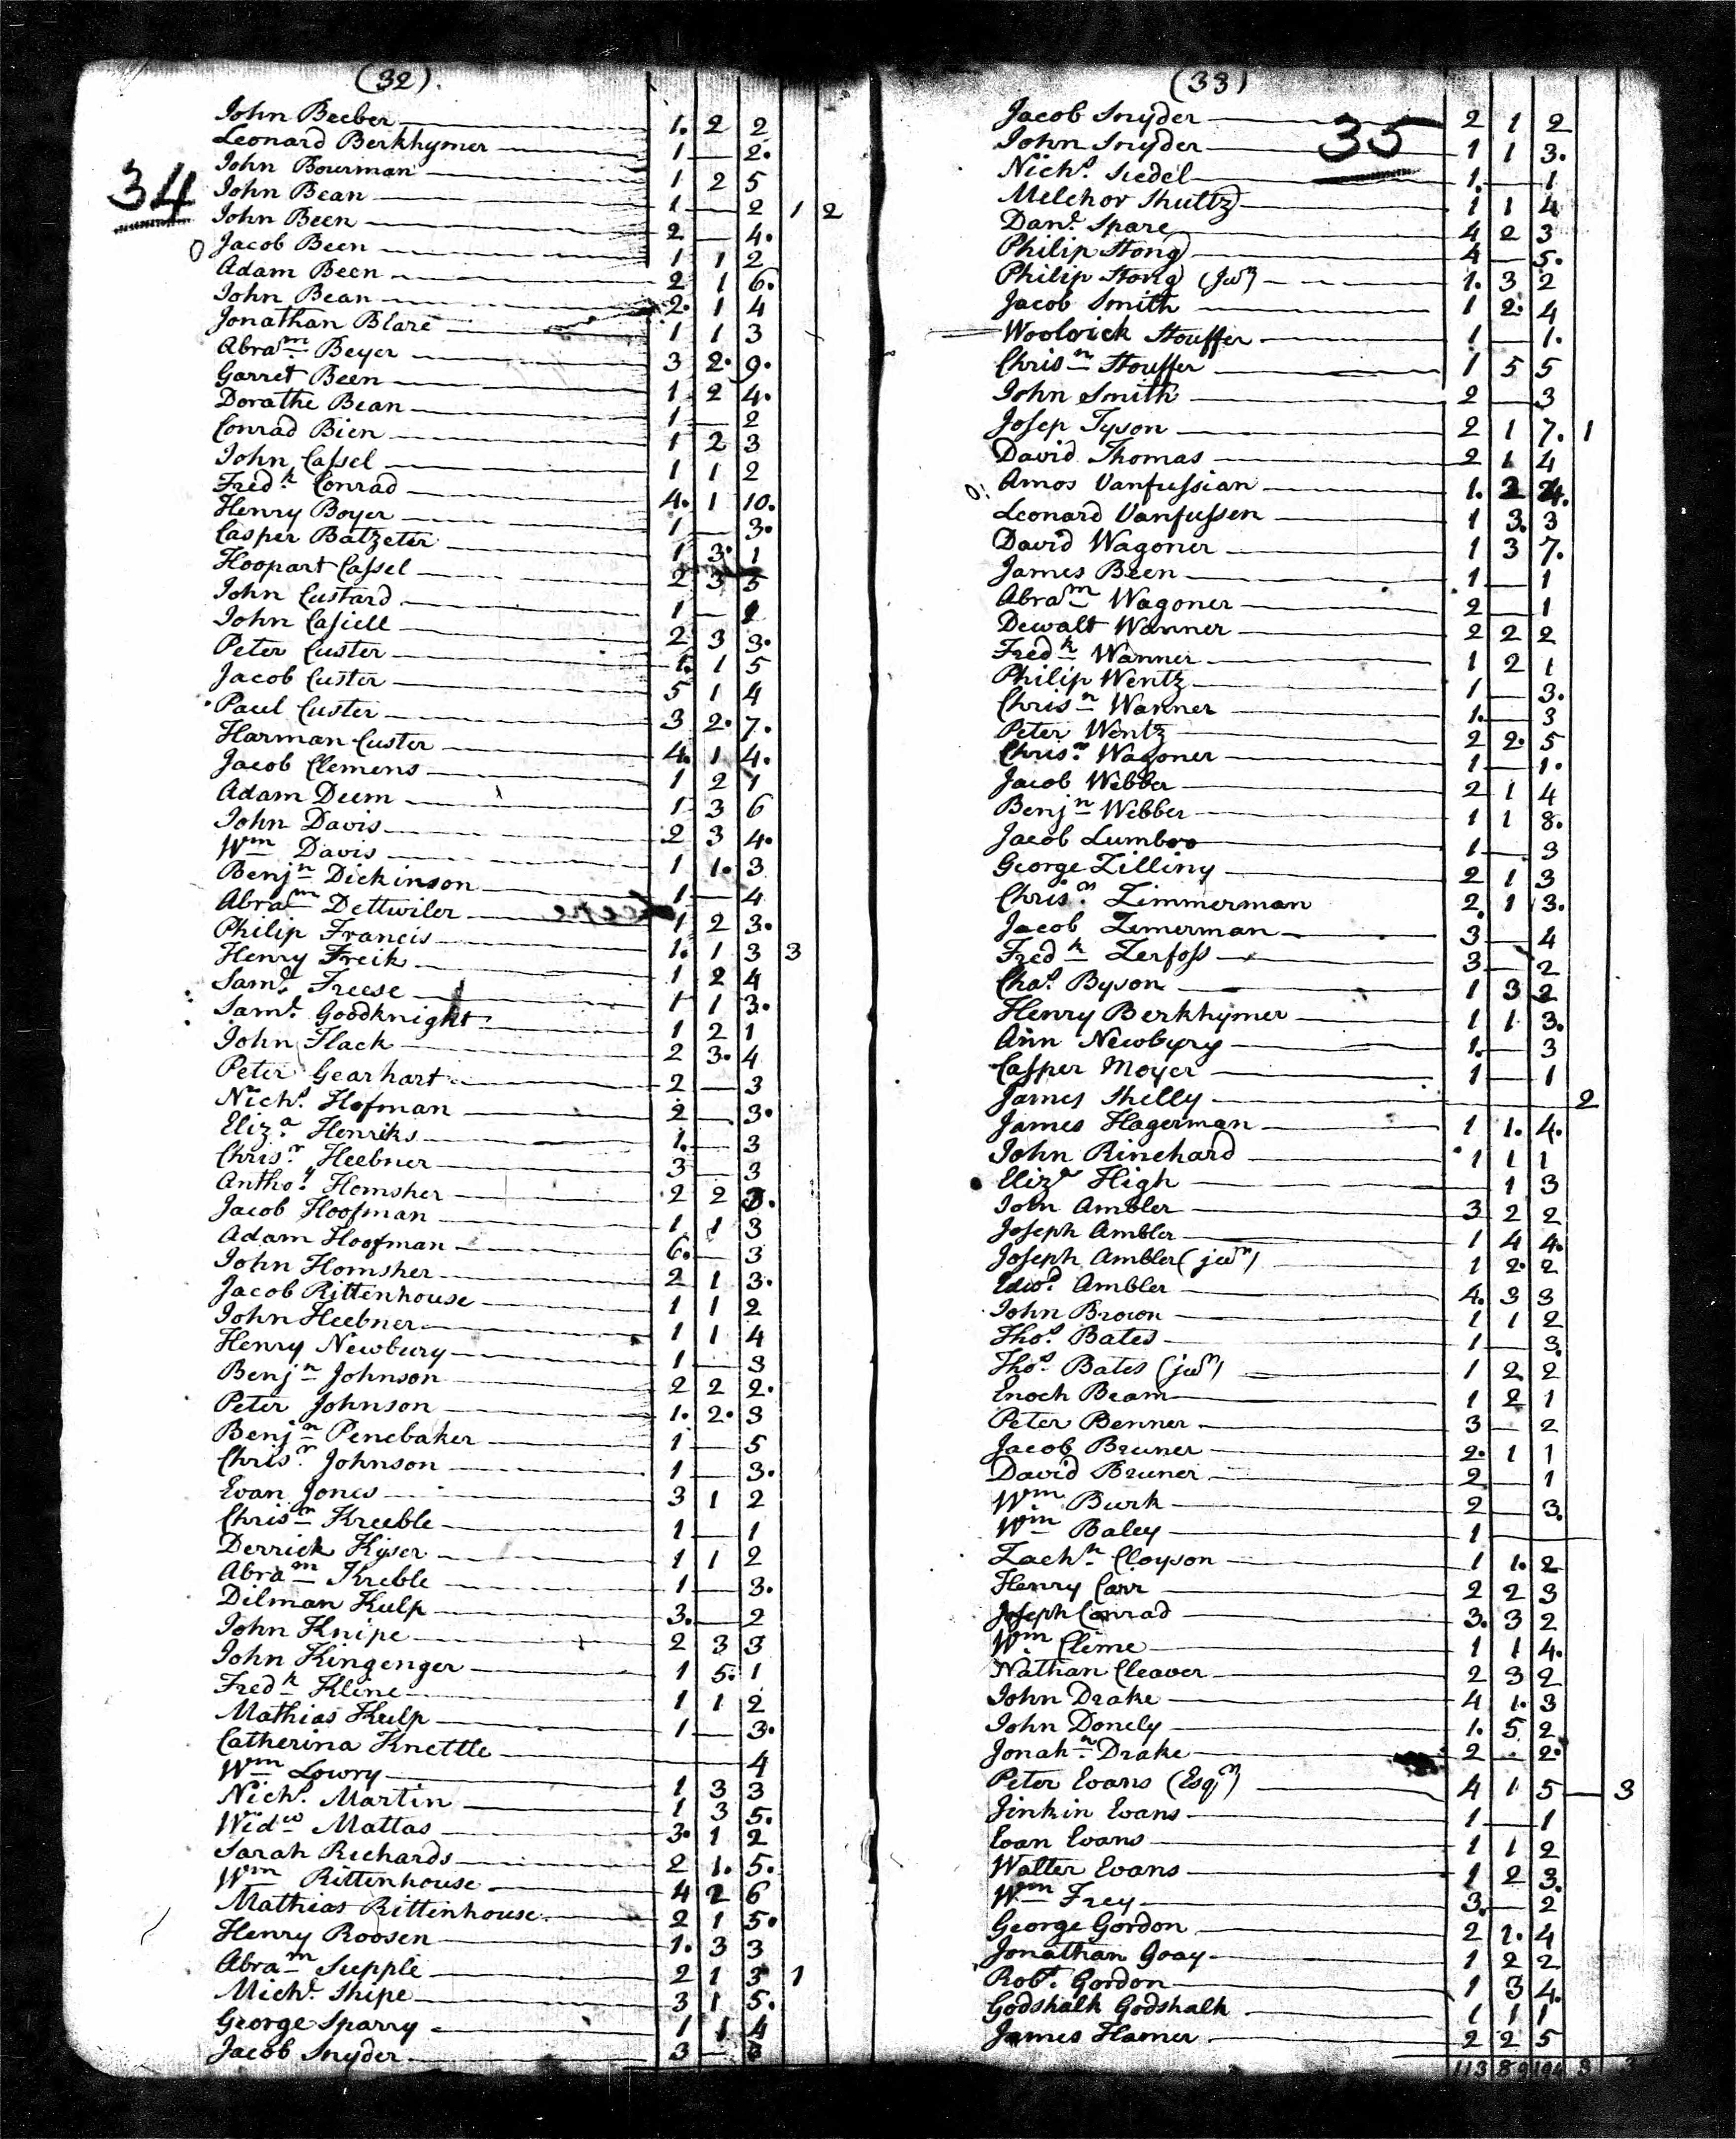 (32).
34
John Beeber 1. 2 2
Leonard Berkhymer 1 — 2.
John Bowman 1 2 5
John Bean 1 — 2 1 2
John Been 2 — 4.
Jacob Been 1 1 2
Adam Been 2 1 6.
John Bean 2. 1 4
Jonathan Blare 1 1 3
Abram Beyer 3 2. 9.
Garret Been 1 2 4.
Dorathe Bean 1 — 2
Conrad Bien 1 2 3
John Cassel 1 1 2
Fredk Conrad 4. 1 10.
Henry Boyer 1 — 3.
Casper Batzeter 1 3. 1
Hoopart Cassel 2 3 5
John Custard 1 —
John Casiell 2 3 3.
Peter Custer 1. 1 5
Jacob Custer 5 1 4
Paul Custer 3 2. 7.
Harman Custer 4. 1 4.
Jacob Clemens 1 2 1
Adam Deem 1 3 6
John Davis 2 3 4.
Wm Davis 1 1. 3
Benjn Dickinson 1 — 4
Abram Dettwiler 1 2 3.
Philip Francis 1. 1 3 3
Henry Freik 1 2 4
Saml Freese 1 1 3.
Saml Goodknight 1 2 1
John Flack 2 3. 4
Peter Gearhart 2 — 3
Nichs Hofman 2 — 3.
Eliza Henriks 1. — 3
Chrisr Heebner 3 — 3
Anthoy Homsher 2 2 3.
Jacob Hoofman 1 1 3
Adam Hoofman 6. — 3
John Homsher 2 1 3.
Jacob Rittenhouse 1 1 2
John Heebner 1 1 4
Henry Newbury 1 — 3
Benjn Johnson 2 2 2.
Peter Johnson 1. 2. 3
Benjn Penebaker 1 — 5
Chrisr Johnson 1 — 3.
Evan Jones 3 1 2
Chrisn Kreeble 1 — 1
Derrick Kyser 1 1 2
Abram Kreble 1 — 3.
Dilman Kulp 3. — 2
John Knipe 2 3 3
John Kingenger 1 5. 1
Fredk Kline 1 1 2
Mathias Kulp 1 — 3.
Catherina Knettle — 4
Wm Lowry 1 3 3
Nichs Martin 1 3 5.
Widw Mattas 3. 1 2
Sarah Richards 2 1. 5.
Wm Rittenhouse 4 2 6
Mathias Rittinhouse 2 1 5.
Henry Roosen 1. 3 3
Abram Supple 2 1 3 1
Michl Shipe 3 1 5.
George Sparry 1 1 4
Jacob Snyder 3 —
(33)
35
Jacob Snyder 2 1 2
John Snyder 1 1 3.
Nichs Siedel 1. — 1
Melchor Shultz 1 1 4
Danl Spare 4 2 3
Philip Stong 4 — 5.
Philip Stong (Junr) 1. 3 2
Jacob Smith 1 2. 4
Woolrick Stouffer 1 — 1.
Chrisn Stouffer 1 5 5
John Smith 2 — 3
Josep Tyson 2 1 7. 1
David Thomas 2 1 4
Amos Vanfussian 1. 2 4.
Leonard Vanfussen 1 3. 3
David Wagoner 1 3 7.
James Been 1 — 1
Abram Wagoner 2 — 1
Dewalt Wanner 2 2 2
Fredk Wanner 1 2 1
Philip Wentz 1 — 3.
Chrisn Wanner 1. — 3
Peter Wentz 2 2. 5
Chrisr Wagoner 1 — 1.
Jacob Webber 2 1 4
Benjn Webber 1 1 8.
Jacob Lumboo 1 — 3
George Zilliny 2 1 3
Chrisn Zimmerman 2. 1 3.
Jacob Zimerman 3 — 4
Fredk Zerfoss 3 — 2
Chas Byson 1 3 2
Henry Berkhymer 1 1 3.
Ann Newbyry 1. — 3
Casper Moyer 1 — 1
James Shelly 2
James Hagerman 1 1. 4.
John Rinehard 1 1 1
Eliza High 1 3
John Ambler 3 2 2
Joseph Ambler 1 4 4.
Joseph Ambler (junr) 1 2. 2
Edwd Ambler 4. 3 3
John Brown 1 1 2
Thos Bates 1 — 3.
Thos Bates (junr) 1 2. 2
Enoch Beam 1 2 1
Peter Benner 3 — 2
Jacob Bruner 2. 1 1
David Bruner 2 — 1
Wm Burk 2 — 3.
Wm Baley 1 —
Zachh Cloyson 1 1. 2
Henry Carr 2 2 3
Joseph Conrad 3. 3 2
Wm Clime 1 1 4.
Nathan Cleaver 2 3 2
John Drake 4 1. 3
John Donely 1. 5 2.
Jonahn Drake 2 — 2.
Peter Evans (Esqr) 4 1 5 — 3
Jinkin Evans 1 — 1
Evan Evans 1 1 2
Walter Evans 1 2 3.
Wm Frey 3. — 2
George Gordon 2 1. 4
Jonathan Goay 1 2 2
Robt Gordon 1 3 4.
Godshalk Godshalk 1 1 1
James Hamer 2 2 5
113 89 194 3 3